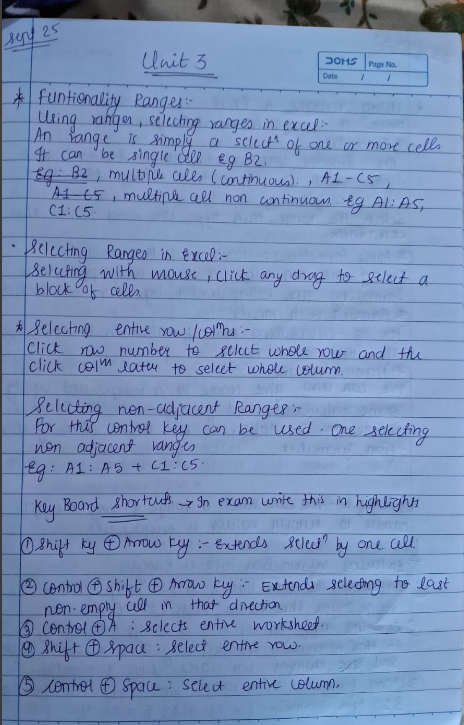 Sept 25
Unit 3
DOMS Page No.
Date / /
* Funtionality Ranges:-
Using ranges, selecting ranges in excel:-
An range is simply a selectn of one or more cells
It can be single cell eg B2.
Eg: B2, multiple celes (continuous)., A1-C5,
A1-C5, multiple all non continuom eg A1:A5,
C1:C5.
· Selecting Ranges in Excel:-
Selecting with mouse, click any drag to select a
block of cells.
* Selecting entire row/colmns:-
Click row number to select whole row and the
click colm later to select whole column.
Selecting non-adjacent Ranges:-
For this control key can be used. One selecting
non adjacent ranges
Eg: A1:A5 + C1:C5.
Key Board shortcuts → In exam write this in highlights
① Shift ky ⊕ Arrow key :- Extends selectn by one cell.
② control ⊕ shift ⊕ Arrow key:- Extends selecting to last
non-empty cell in that direction
③ Control ⊕ A : selects entire worksheet.
④ Shift ⊕ space : select entire row.
⑤ control ⊕ space : select entire column.